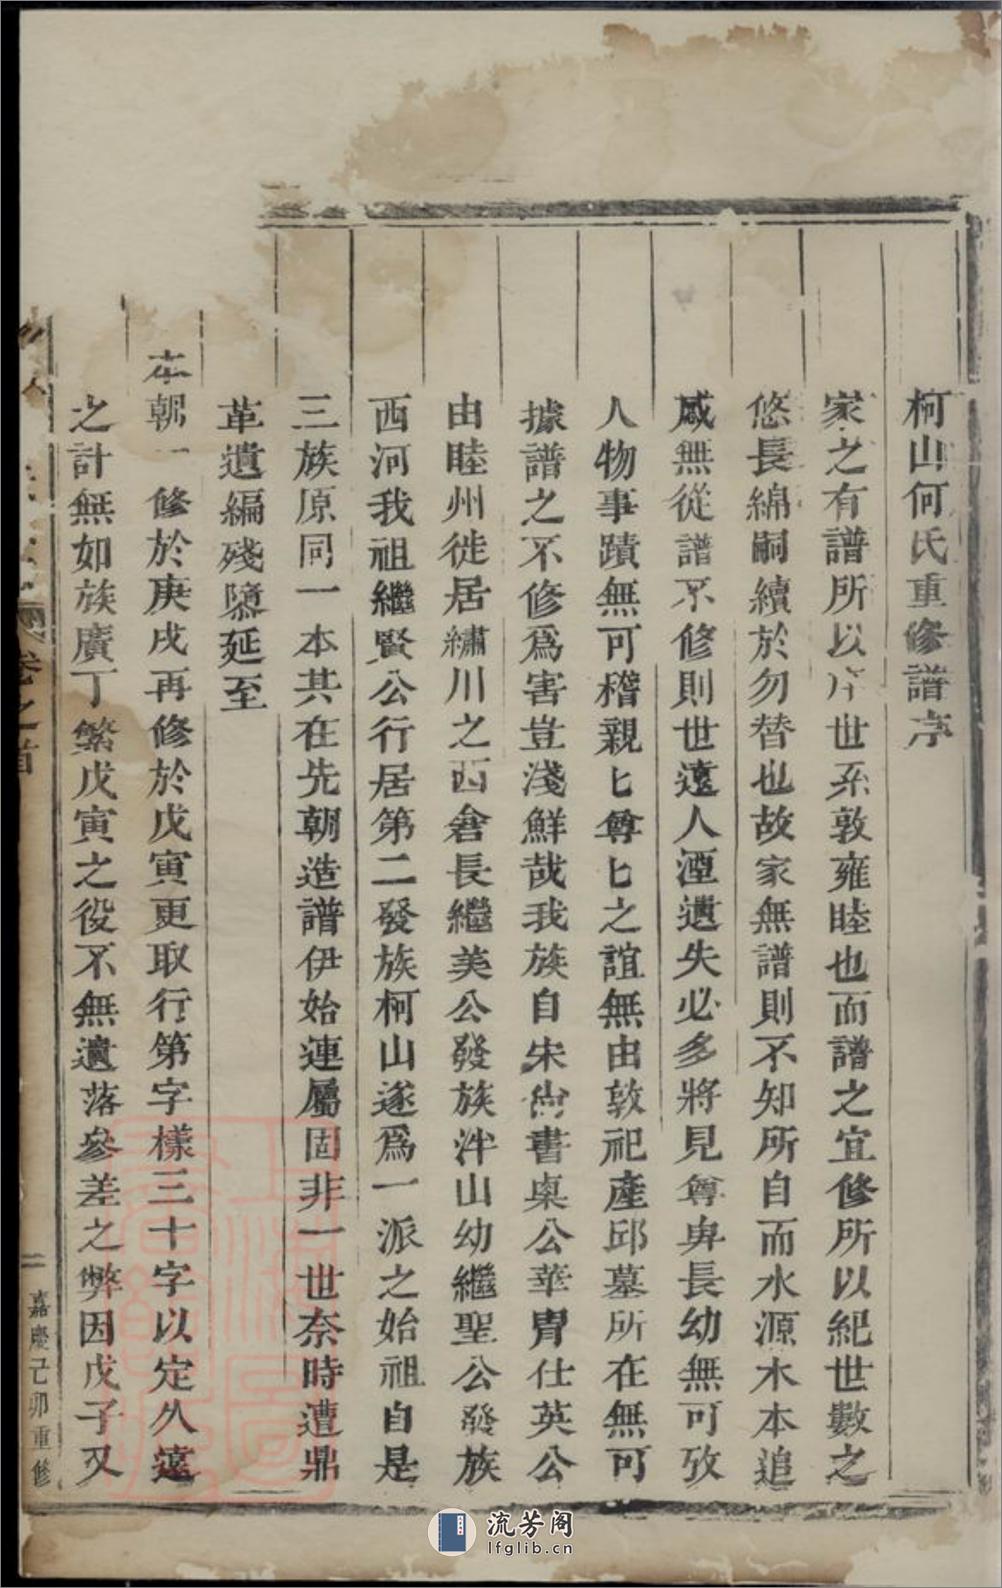 柯山何氏重修譜序
家之有譜所以序世系敦雍睦也而譜之宜修所以紀世數之
悠長綿嗣續於勿替也故家無譜則不知所自而水源木本追
感無從譜不修則世遠人湮遺失必多將見尊卑長幼無可攷
人物事蹟無可稽親匕尊匕之誼無由敦祀產邱墓所在無可
據譜之不修爲害豈淺鮮哉我族自宋尙書㮚公華胄仕英公
由睦州徙居繡川之西倉長繼美公發族泮山幼繼聖公發族
西河我祖繼賢公行居第二發族柯山遂爲一派之始祖自是
三族原同一本其在先朝造譜伊始連屬固非一世奈時遭鼎
革遺編殘隳延至
本朝一修於庚戌再修於戊寅更取行第字樣三十字以定久遠
之計無如族廣丁繁戊寅之役不無遺落參差之弊因戊子又
卷之首
二
嘉慶己卯重修
流芳阁
lfglib.cn